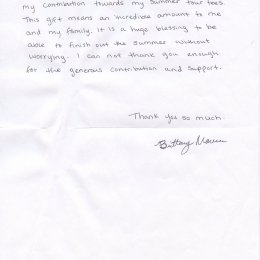 my contribution towards my summer tour fees.
This gift means an incredible amount to me
and my family. It is a huge blessing to be
able to finish out the summer without
worrying. I can not thank you enough
for the generous contribution and support.
Thank you so much.
Brittany